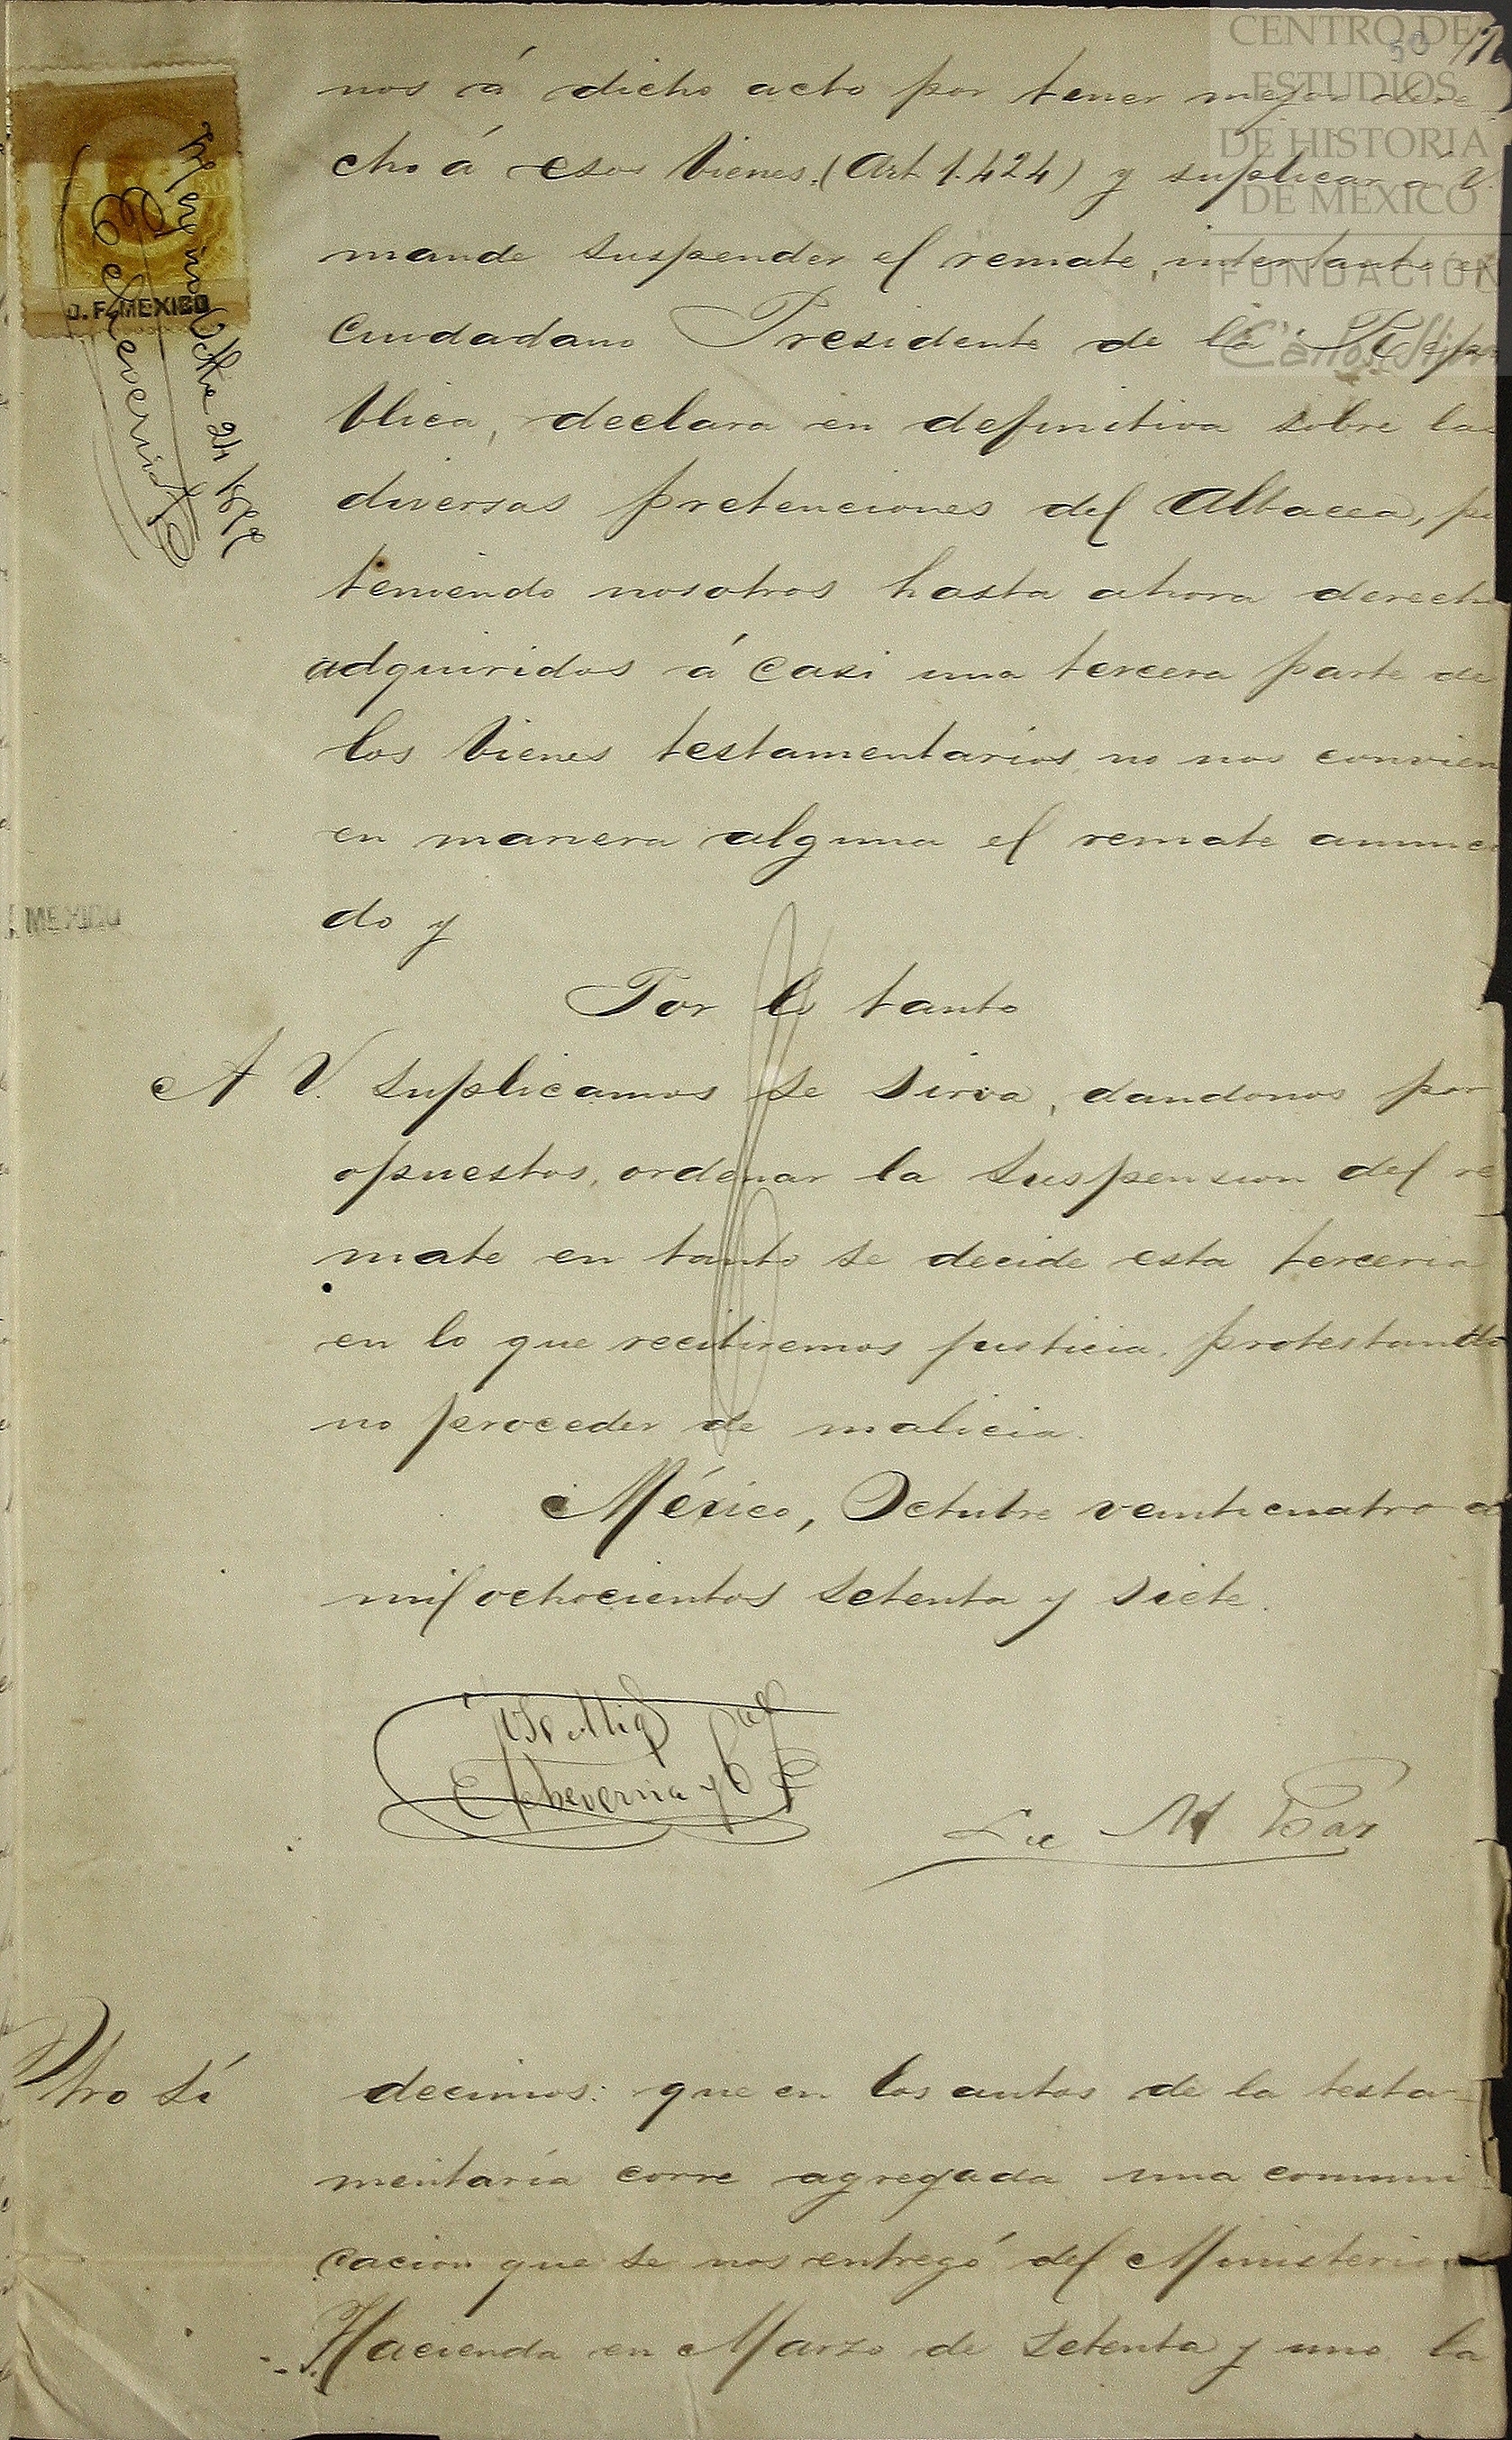 CENTRO DE
ESTUDIOS
DE HISTORIA
DE MEXICO
FUNDACIÓN
Carlos Slim
30
nos á dicho acto por tener mejor dere
cho á esos bienes. (Art 1.424) y suplicar á V.
mande suspender el remate, intertanto el
Ciudadano Presidente de la Repú
blica, declara en definitiva sobre las
diversas pretenciones del Albacea, p
teniendo nosotros hasta ahora derech
adquiridos á casi una tercera parte de
los bienes testamentarios, no nos convien
en manera alguna el remate anunci
do y
Por lo tanto
A V. suplicamos se sirva, dandonos por
opuestos, ordenar la suspension del re
mate en tanto se decide esta terceria
en lo que recibiremos justicia, protestando
no proceder de malicia.
México, Octubre veinticuatro d
mil ochocientos setenta y siete.
Echeverria y
Lic M
Otro sí decimos: que en los autos de la testa-
mentaría corre agregada una comuni
cacion que se nos entregó del Ministerio
Hacienda en Marzo de setenta y uno la
D. F. MEXICO
Octre 24
Echeverria
MEXICO